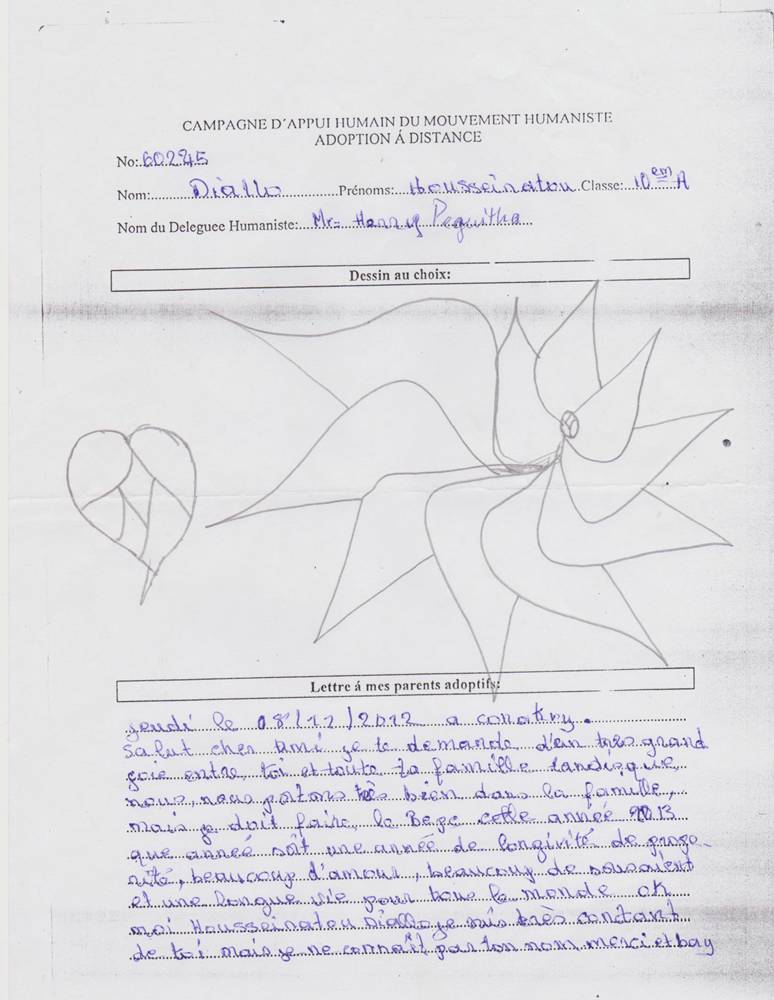 CAMPAGNE D'APPUI HUMAIN DU MOUVEMENT HUMANISTE
ADOPTION Á DISTANCE
No:60245
Nom: Diallo Prénoms: Housseinatou Classe: 10em A
Nom du Deleguee Humaniste: Mr= Hanny Peguitha
Dessin au choix:
Lettre á mes parents adoptifs:
jeudi le 08/11/2012 a conakry.
salut cher ami je te demande d'un très grand
joie entre toi et toute ta famille tandisque
nous, nous portons très bien dans la famille,
mais j doit faire le Bepc cette année 2013
que année soit une année de longivité de
beaucoup d'amour, beaucoup de
et une longue vie pour tous le monde ok
moi Housseinatou Diallo je suis très contant
de toi mais je ne connaît pas ton nom merci et bay